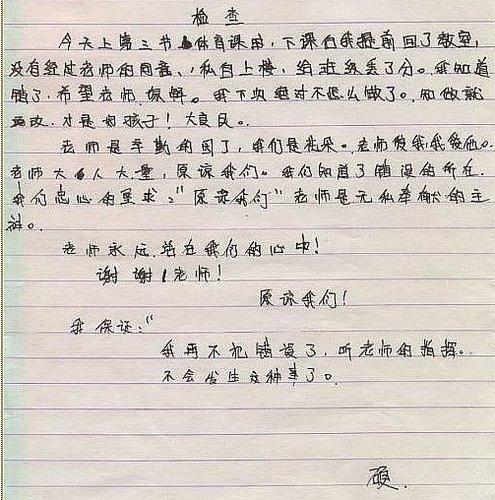 检查
今天上第三节体育课时,下课后我提前回了教室,
没有经过老师的同意、私自上楼,给班级丢了分。我知道
错了,希望老师谅解。我下次绝对不怎么做了。知做就
改,才是好孩子!大良民。
老师是辛勤的园丁,我们是花朵。老师爱我,我爱他。
老师大人大量,原谅我们。我们知道了错误的所在.
我们忠心的要求:"原谅我们"老师是无私奉献的主
。
老师永远活在我们的心中!
谢谢老师!
原谅我们!
我保证:"
我再不犯错误了,听老师的指挥。
不会发生这种事了。